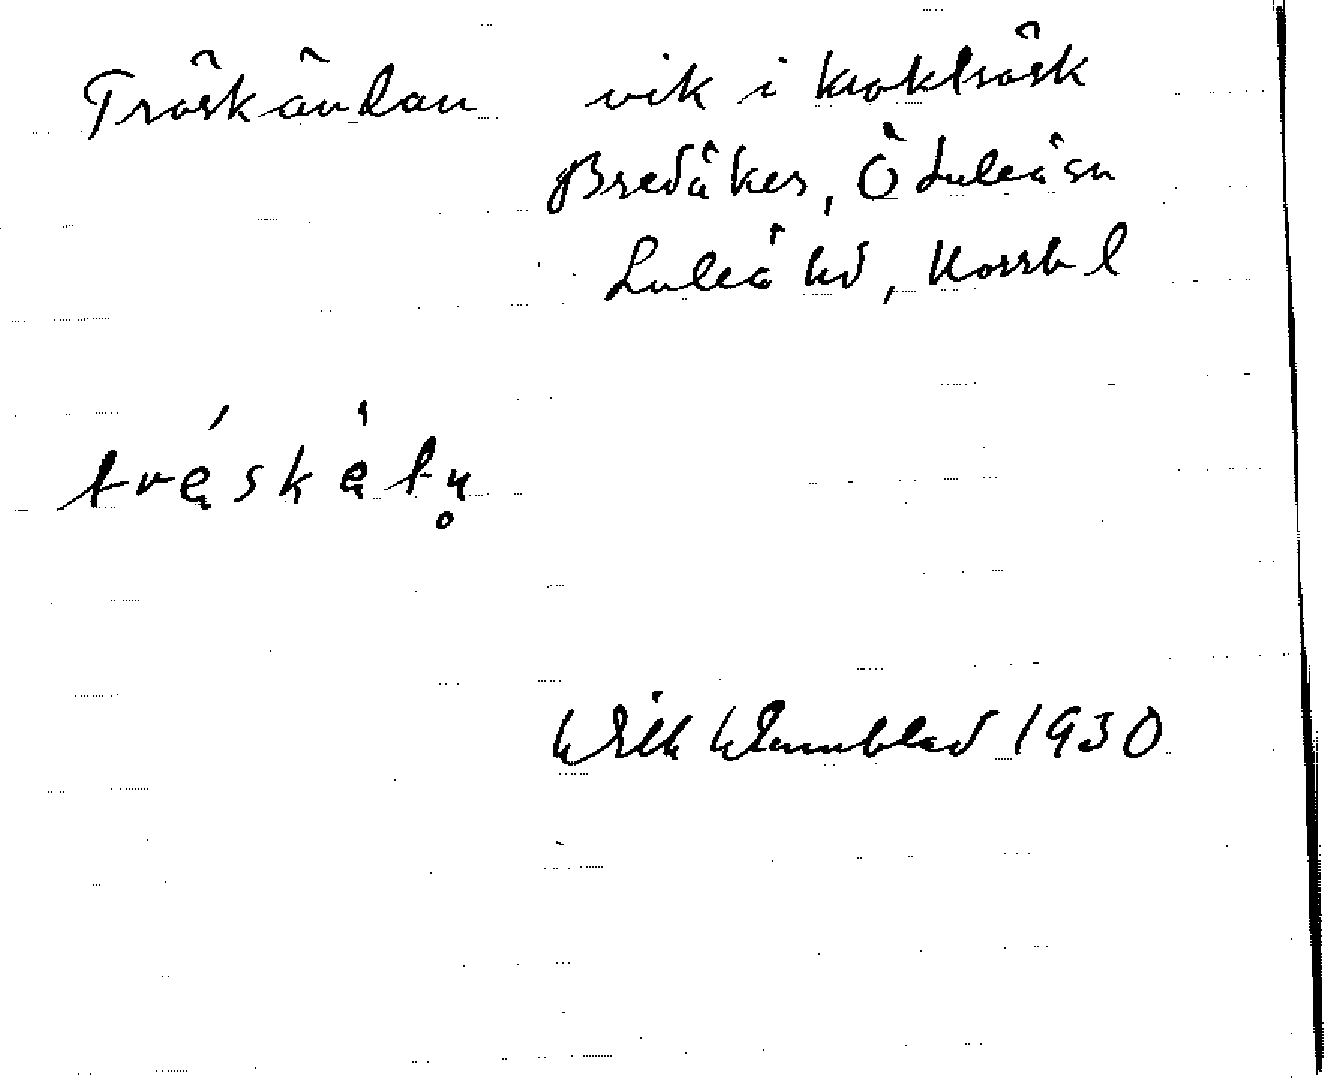 Träskändan vik i Krokträsk
Bredåker, Ö Luleå sn
Luleå hd, Norrb l
tręskętn̥
Wilh Wennblad 1930